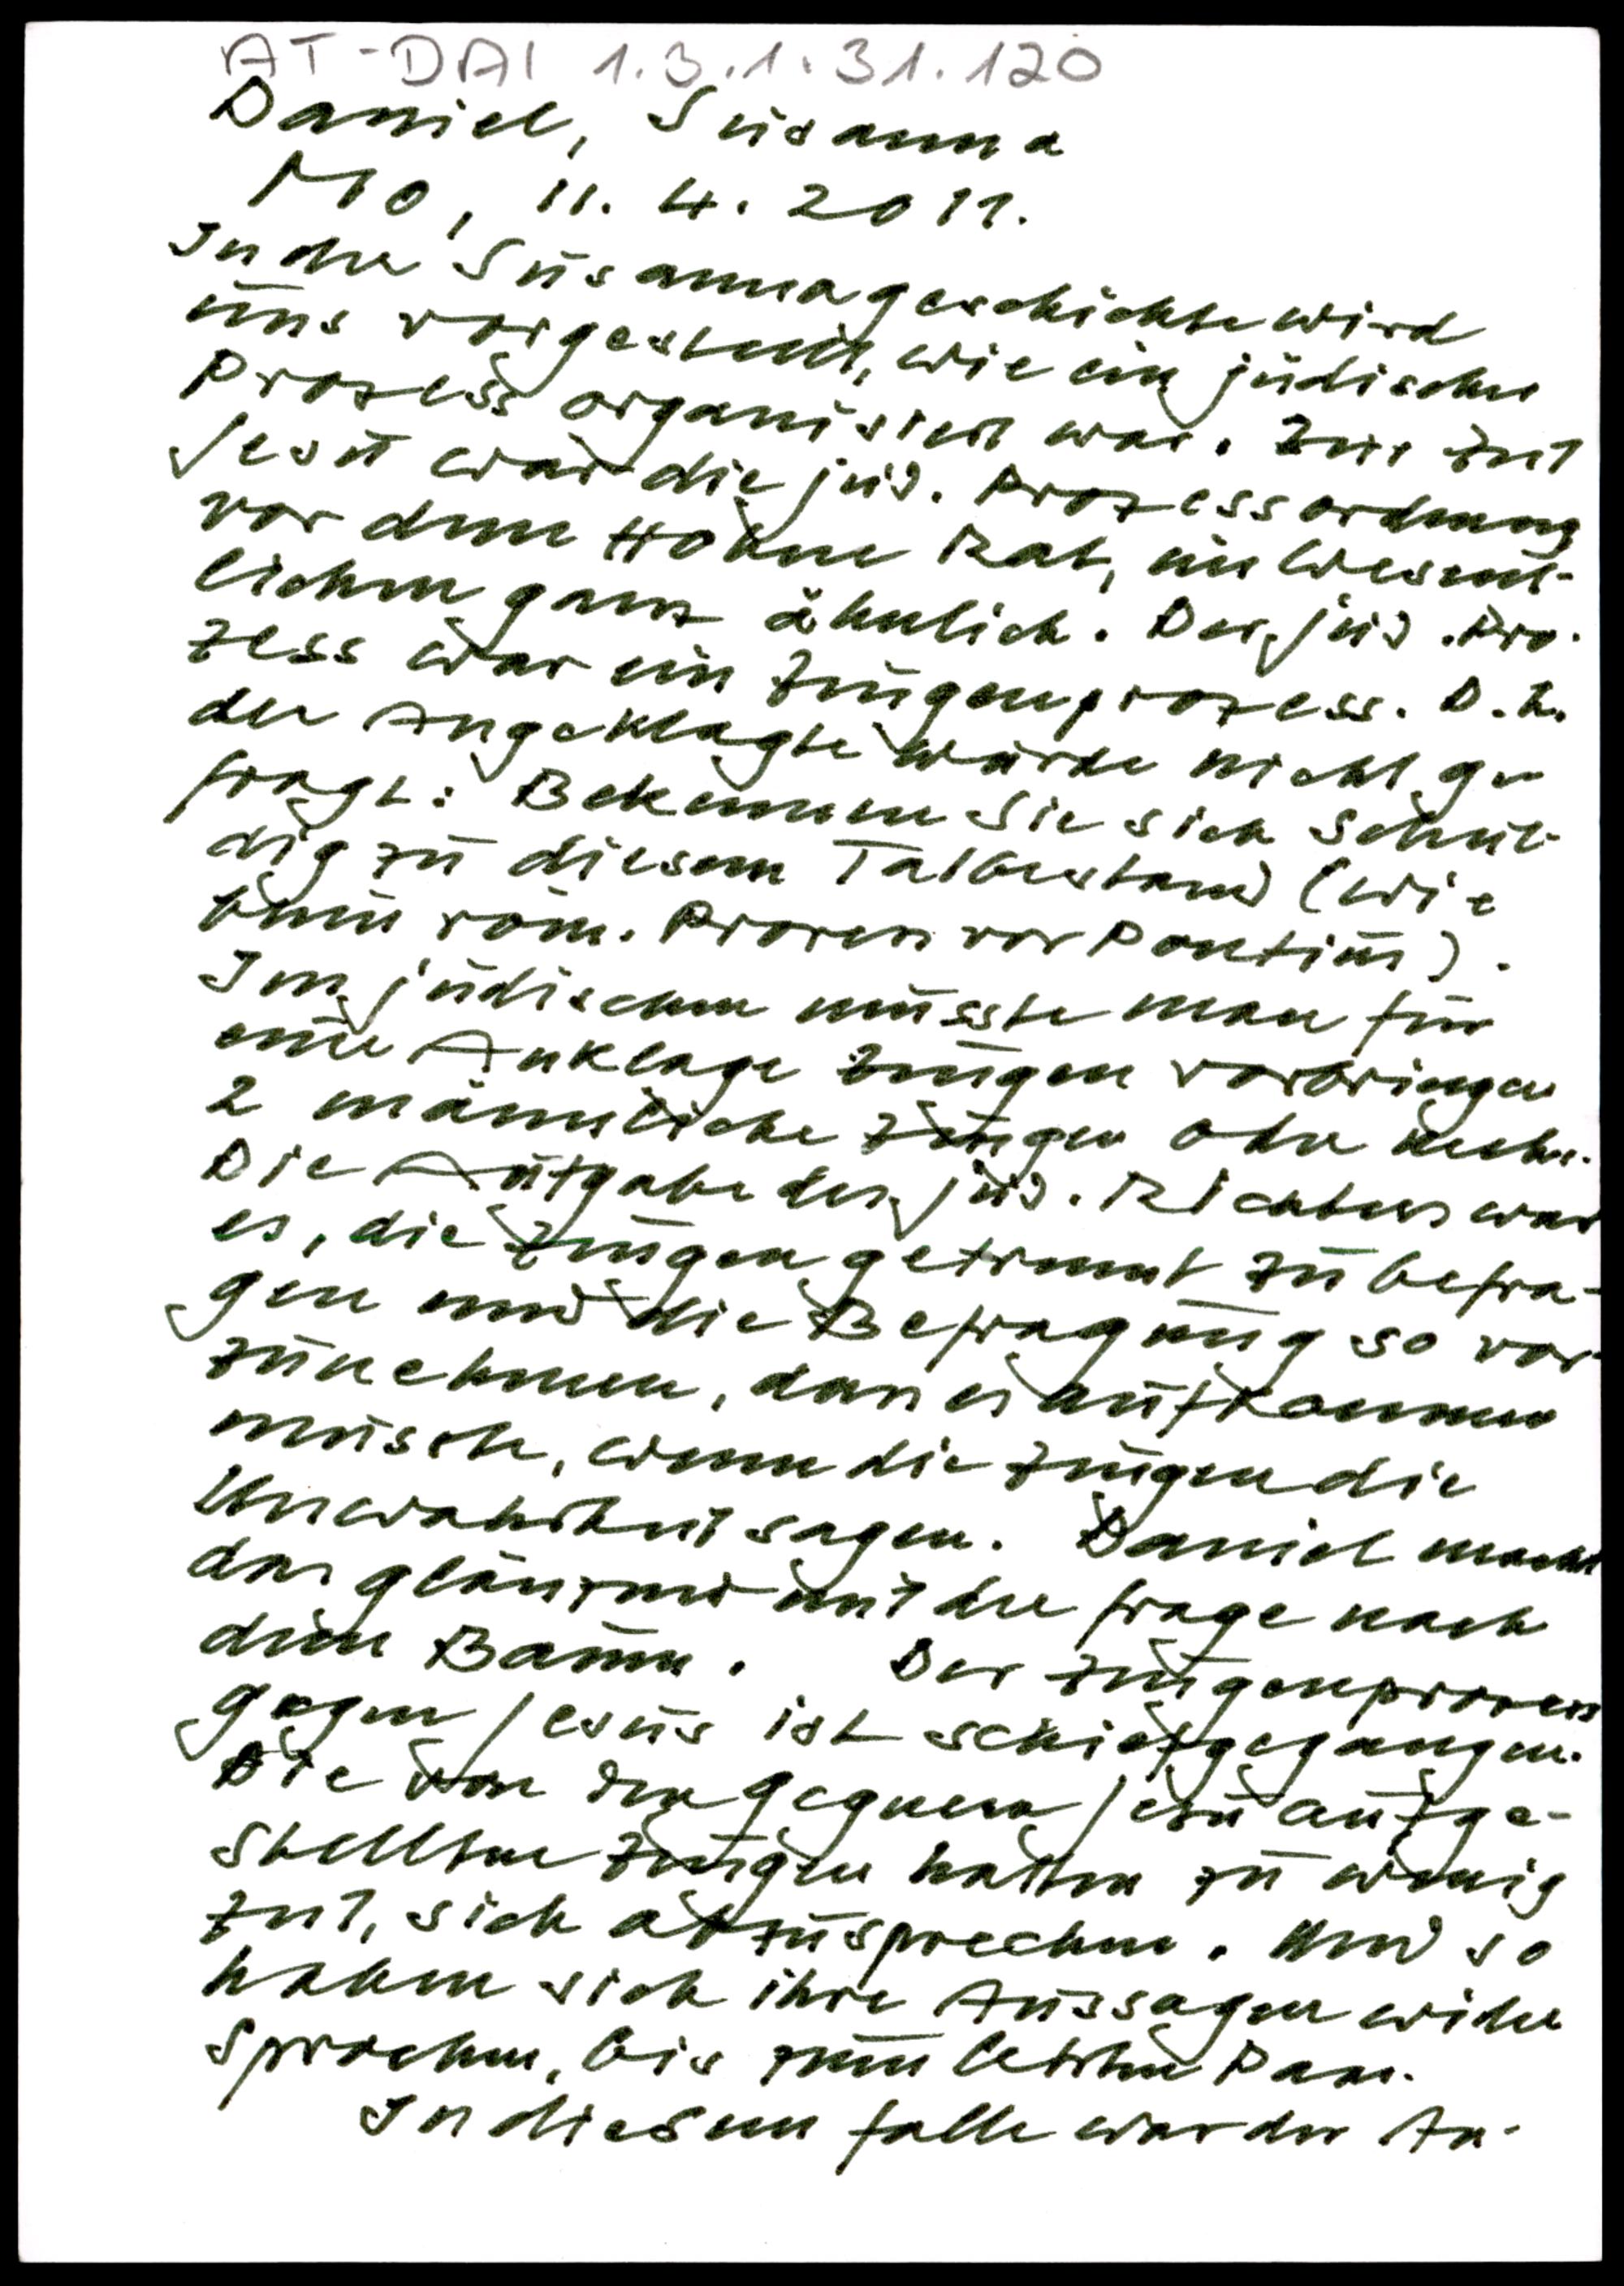 AT-DAI 1.3.1.31.120
Daniel, Susanna
Mo, 11.4.2011.
In der Susannageschichte wird
uns vorgestellt, wie ein jüdischer
Prozess organisiert war. Zur Zeit
Jesu war die jüd. Prozessordnung
vor dem Hohen Rat, im Wesent-
lichen ganz ähnlich. Der jüd. Pro-
zess war ein Zeugenprozess. D.h.
der Angeklagte wurde nicht ge-
fragt: Bekennen Sie sich schul-
dig zu diesem Tatbestand (wie
beim röm. Prozess vor Pontius).
Im jüdischen musste man für
eine Anklage Zeugen vorbringen
2 männliche Zeugen oder mehr.
Die Aufgabe des jüd. Richters war
es, die Zeugen getrennt zu befra-
gen und die Befragung so vor-
zunehmen, dass es aufkommen
musste, wenn die Zeugen die
Unwahrheit sagen. Daniel macht
das glänzend mit der Frage nach
dem Baum. Der Zeugenprozess
gegen Jesus ist schiefgegangen.
Die von den Gegnern Jesu aufge-
stellten Zeugen hatten zu wenig
Zeit, sich abzusprechen. Und so
haben sich ihre Aussagen wider
sprochen, bis zum letzten Paar.
In diesem Falle war der An-